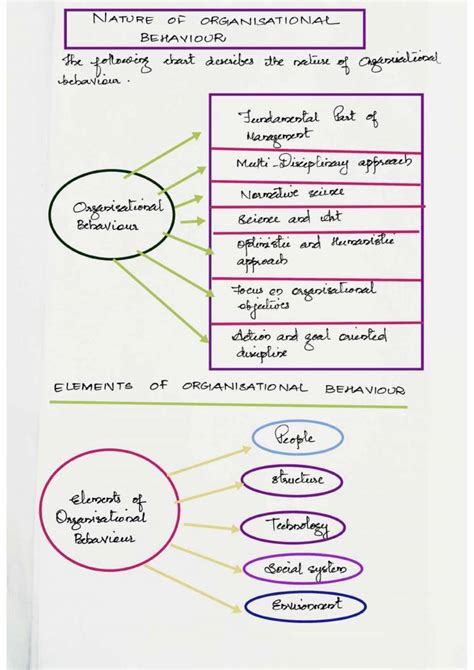 NATURE OF ORGANISATIONAL
BEHAVIOUR
The following chart describes the nature of Organisational
behaviour.
Organisational
Behaviour
Fundamental Part of
Management
Multi-Disciplinary approach
Normative science
Science and Art
Optimistic and Humanistic
approach
Focus on organisational
objectives
Action and goal oriented
discipline
ELEMENTS OF ORGANISATIONAL BEHAVIOUR
Elements of
Organisational
Behaviour
People
Structure
Technology
Social system
Environment